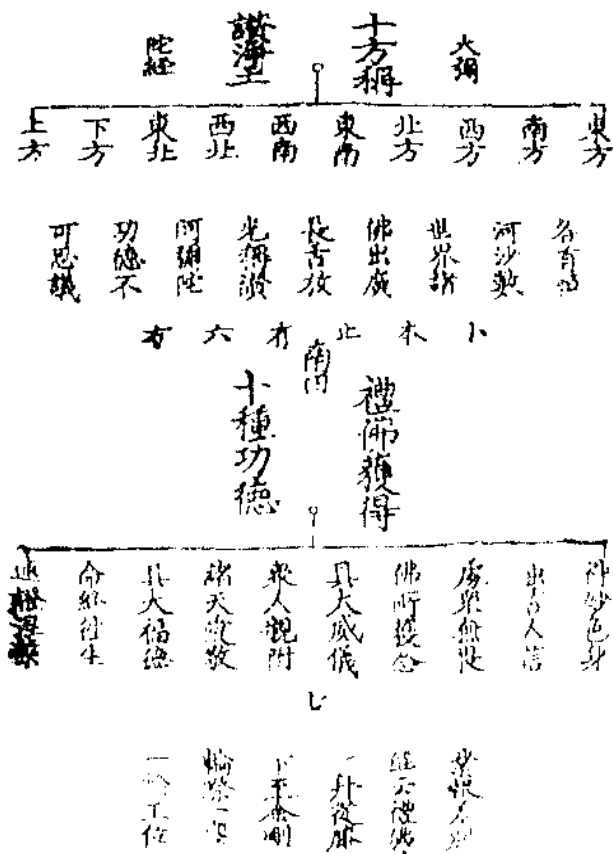 大彌
十方稱
讚淨土
陀經
東方
南方
西方
北方
東南
西南
西北
東北
下方
上方
各有恒
河沙數
世界諸
佛出廣
長舌放
光稱讚
阿彌陀
功德不
可思議
小本止有六方
禮佛獲得
十種功德
得妙色身
出言人信
處眾無畏
佛所護念
具大威儀
眾人親附
諸天愛敬
具大福德
命終往生
速證涅槃
業報差別
經云禮佛
一拜從膝
下至金剛
輪際一塵
一輪王位